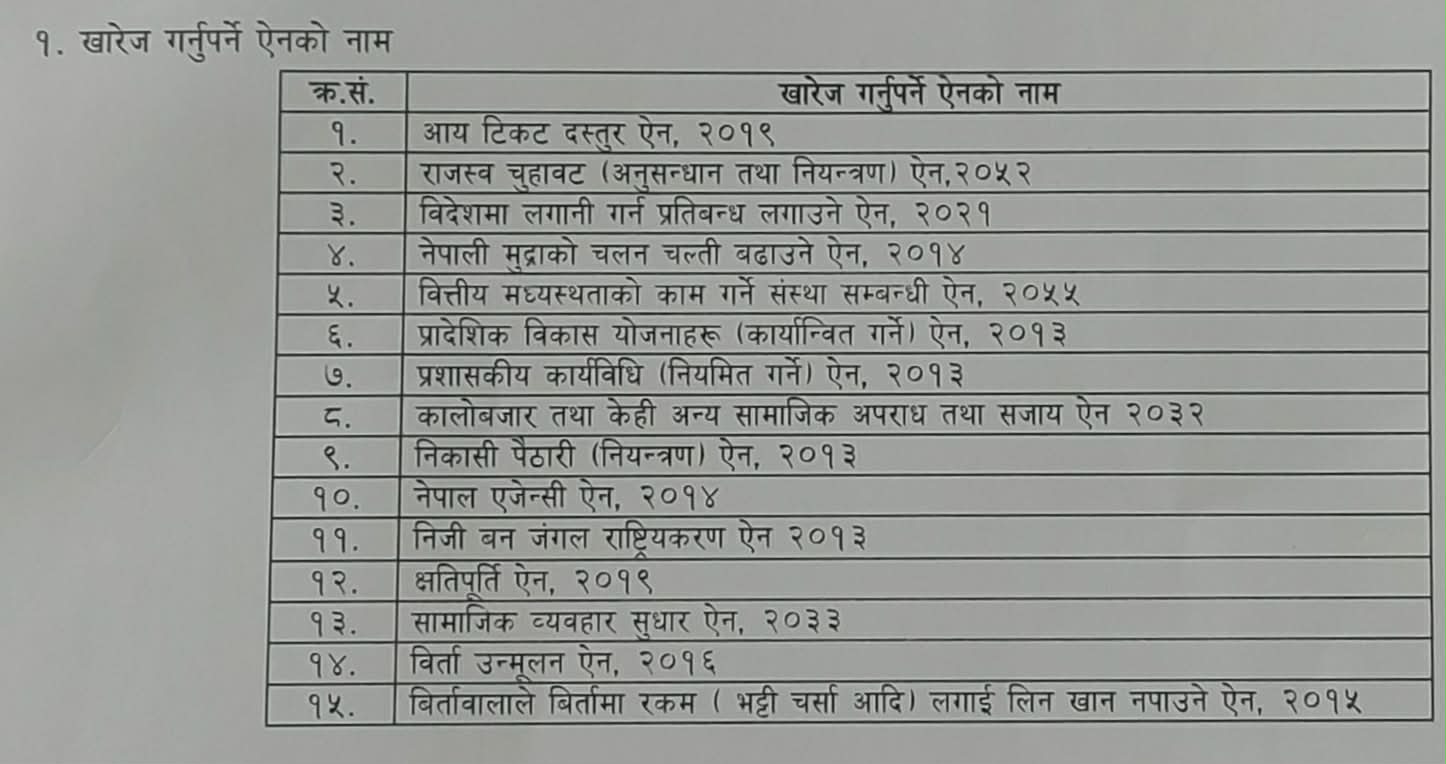 १. खारेज गर्नुपर्ने ऐनको नाम
क्र.सं. खारेज गर्नुपर्ने ऐनको नाम
१. आय टिकट दस्तुर ऐन, २०१९
२. राजस्व चुहावट (अनुसन्धान तथा नियन्त्रण) ऐन,२०५२
३. विदेशमा लगानी गर्न प्रतिबन्ध लगाउने ऐन, २०२१
४. नेपाली मुद्राको चलन चल्ती बढाउने ऐन, २०१४
५. वित्तीय मध्यस्थताको काम गर्ने संस्था सम्बन्धी ऐन, २०५५
६. प्रादेशिक विकास योजनाहरू (कार्यान्वित गर्ने) ऐन, २०१३
७. प्रशासकीय कार्यविधि (नियमित गर्ने) ऐन, २०१३
८. कालोबजार तथा केही अन्य सामाजिक अपराध तथा सजाय ऐन २०३२
९. निकासी पैठारी (नियन्त्रण) ऐन, २०१३
१०. नेपाल एजेन्सी ऐन, २०१४
११. निजी बन जंगल राष्ट्रियकरण ऐन २०१३
१२. क्षतिपूर्ति ऐन, २०१९
१३. सामाजिक व्यवहार सुधार ऐन, २०३३
१४. विर्ता उन्मूलन ऐन, २०१६
१५. बिर्तावालाले बिर्तामा रकम ( भट्टी चर्सा आदि) लगाई लिन खान नपाउने ऐन, २०१५